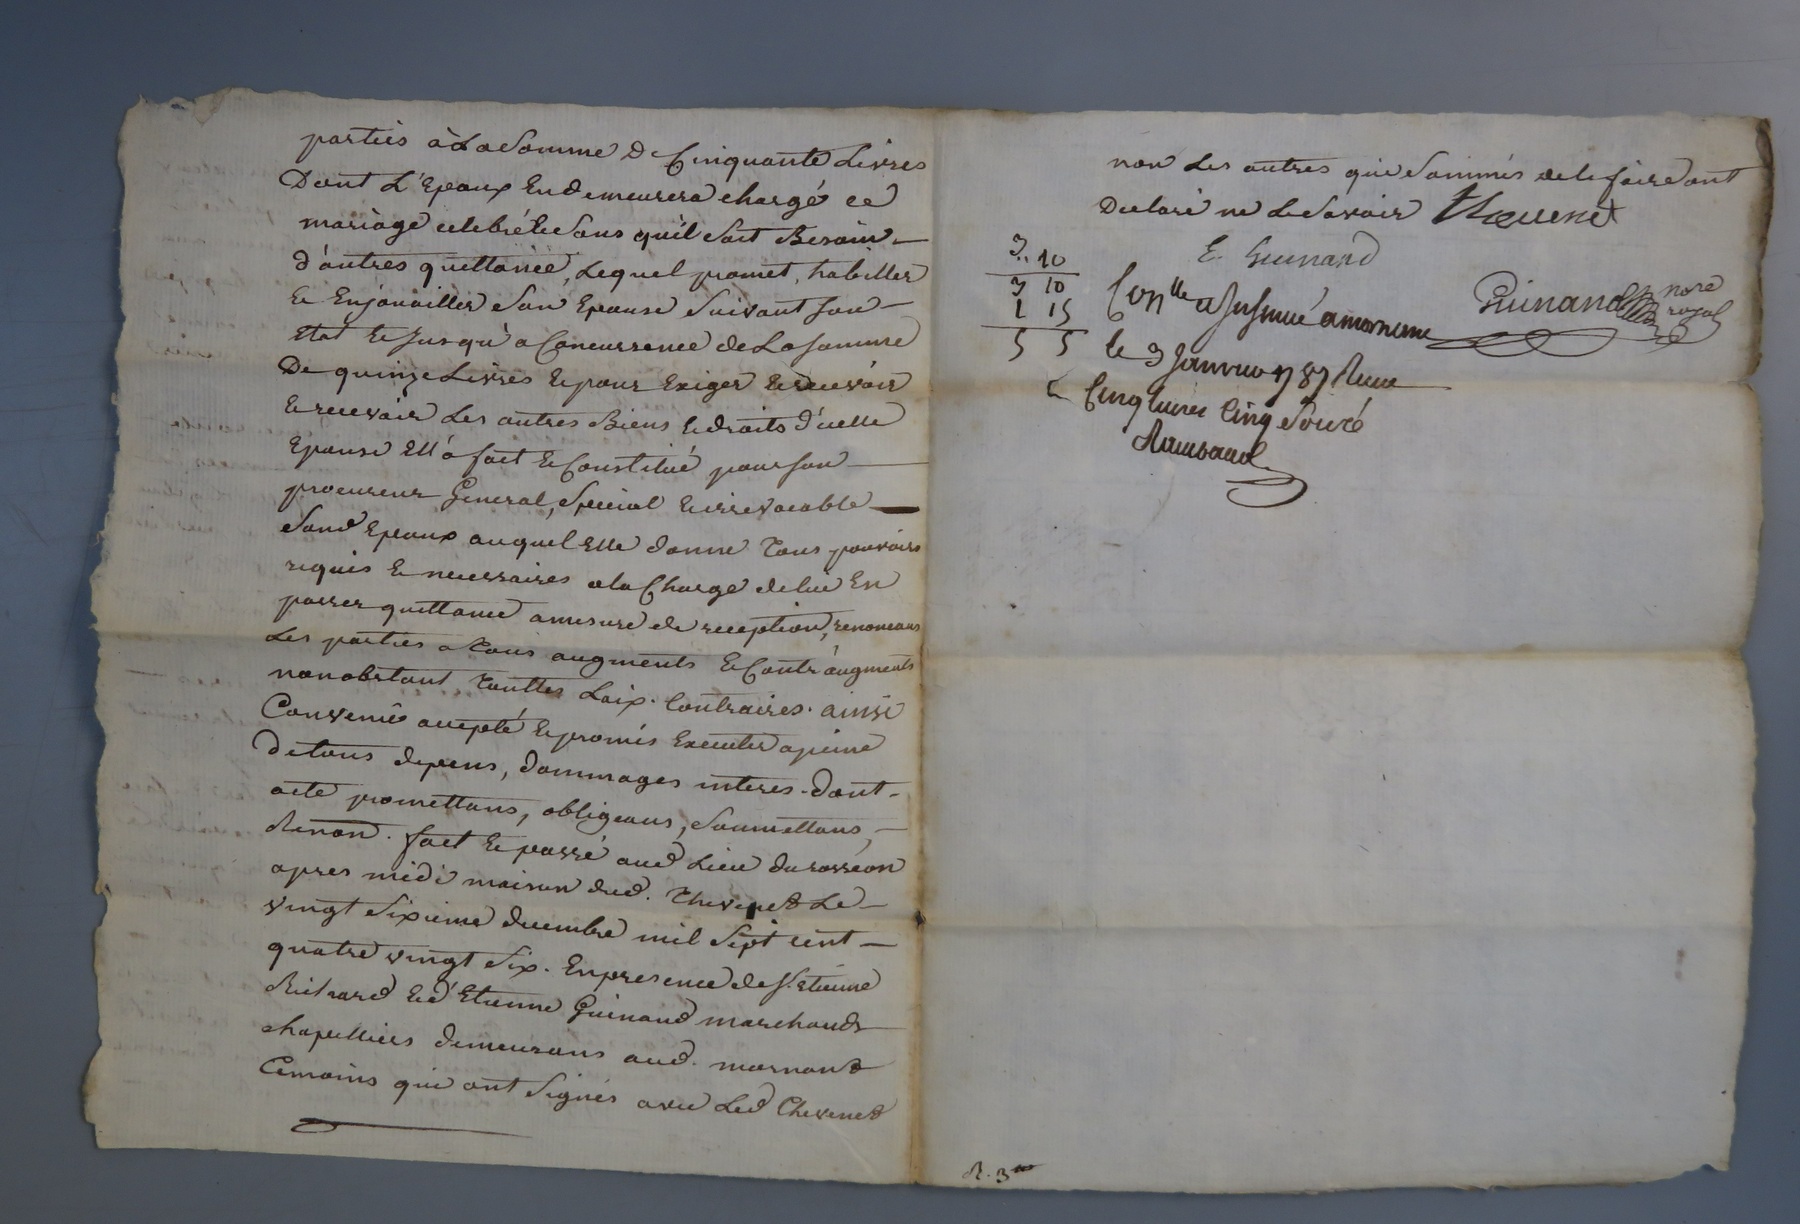 parties à la somme de Cinquante Livres
Dont L'Epoux En demeurera chargé ce
mariage celebré le sans qu'il soit Besoin
d'autres quittance, Lequel promet, habiller
Et Enjouailler son Epouse suivant son
Etat Et jusqu'a Concurrence de La somme
De quinze Livres Et pour Exiger Et recevoir
Et recevoir Les autres Biens Et droits d'icelle
Epouse Ell'a fait Et Constitué pour son
procureur General, special Et irrevocable
sond Epoux auquel Elle donne Tous pouvoirs
requis Et necessaires a la Charge de lui En
passer quittance a mesure de reception, renonceans
Les parties a Tous augments Et Contr'augments
nonobstant Touttes Loix Contraires. ainsi
Convenu accepté Et promis Executer a peine
De tous depens, dommages interes. Dont
acte promettans, obligeans, soumettans,
Renon. fait Et passé aud Lieu du rosseon
apres midi maison dud. Thevenet Le
vingt sixieme decembre mil sept cent
quatre vingt six. En presence de s. Etienne
Richard Et d'Etienne Guinand marchands
chapelliers demeurans aud. mornant
Temoins qui ont signés avec Led Thevenet
non Les autres qui sommés de le faire ont
Declaré ne Le savoir Thevenet
E. Guinand
Guinand nore royal
3. 10
3 10
1 15
5 5
Con.lle a Insinué a mornant
le 9 Janvier 1787 Recu
Cinq livres Cinq sous
R. 3